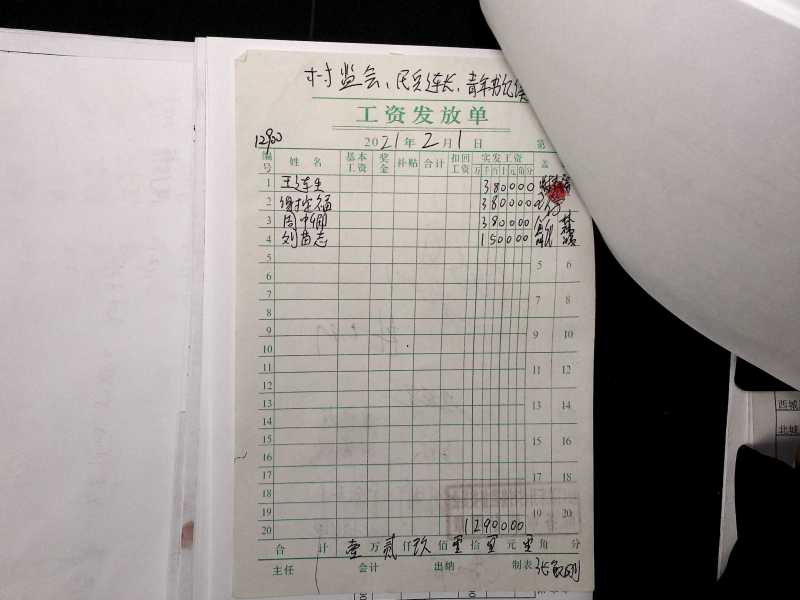 村监会、民兵连长、青年书记
工资发放单
12900
2021年2月1日 第
编号 姓名 基本工资 奖金 补贴 合计 扣回工资 实发工资 盖
万 千 百 十 元 角 分
1 王连生 380000
2 380000
3 周 380000
4 刘苗志 150000
5 5 6
6
7 7 8
8
9 9 10
10
11 11 12
12
13 13 14
14
15 15 16
16
17 17 18
18
19 19 20
20 1290000
合计 壹万贰仟玖佰零拾零元零角 分
主任 会计 出纳 制表
西城
北城